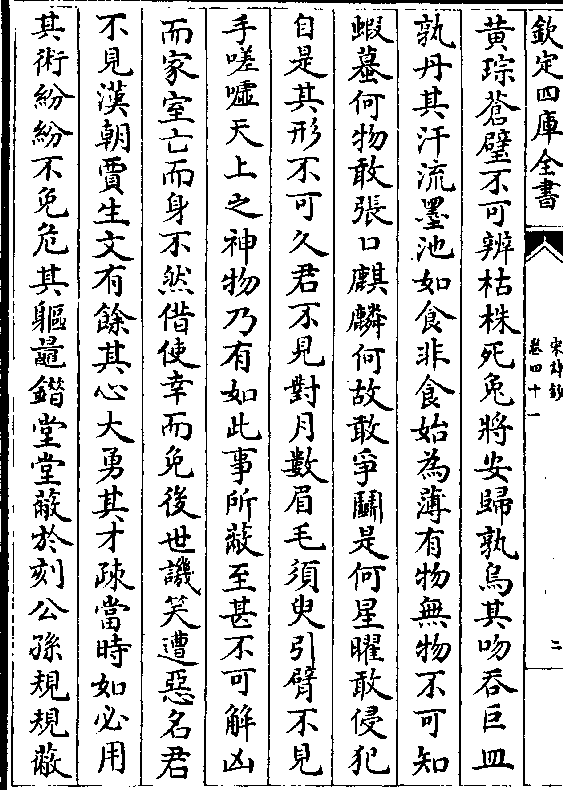 欽定四庫全書
宋詩鈔
卷四十一
二
黄琮蒼璧不可辨枯株死兔將安歸孰烏其吻吞巨皿
孰丹其汗流墨池如食非食始為薄有物無物不可知
蝦蟇何物敢張口麒麟何故敢爭鬭是何星曜敢侵犯
自是其形不可久君不見對月數眉毛須臾引臂不見
手嗟嘘天上之神物乃有如此事所蔽至甚不可解凶
而家室亡而身不然借使幸而免後世譏笑遭惡名君
不見漢朝賈生文有餘其心大勇其才疎當時如必用
其術紛紛不免危其軀鼂錯堂堂蔽於刻公孫規規蔽